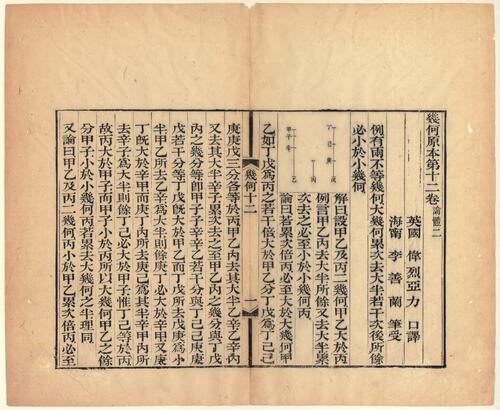 幾何原本第十二卷 論體二
英國 偉烈亞力 口譯
海甯 李善蘭 筆受
例有兩不等幾何大幾何累次去大半若干次後所餘
必小於小幾何
解曰設甲乙及丙二幾何甲乙大於丙
例言甲乙內去大半所餘又去大半累
次去之必至小於小幾何丙
論曰若累次倍丙必至大於大幾何甲
丁己庚戊
丙
甲子辛乙
乙如丁戊爲丙之若干倍大於甲乙分丁戊爲丁己己
幾何十二 一
庚庚戊三分各等於丙甲乙內去其大半乙辛辛甲內
又去其大半辛子累次去之至甲乙內之幾分與丁戊
內之幾分等即甲子子辛辛乙若干分與丁己己庚庚
戊若干分等丁戊旣大於甲乙而丁戊所去庚戊爲小
半甲乙所去乙辛爲大半則餘丁庚必大於辛甲又庚
丁旣大於辛甲而庚丁內所去庚己爲其半辛甲內所
去辛子爲大半則餘丁己必大於甲子惟丁己等於丙
故丙大於甲子而甲子小於丙所以大幾何甲乙之餘
分甲子小於小幾何丙若累去大幾何之半理同
又論曰甲乙及丙二幾何丙小於甲乙累次倍丙必至